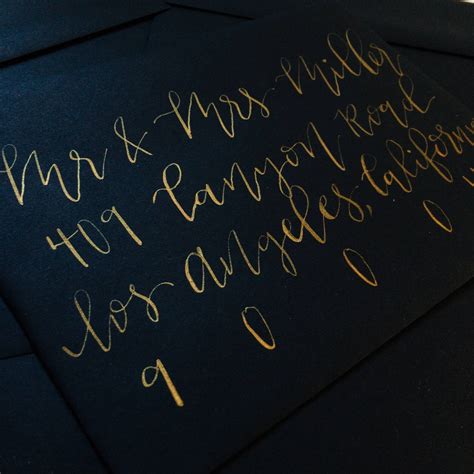 Mr & Mrs Miller
409 Canyon Road
Los Angeles, California
9 0 0 0